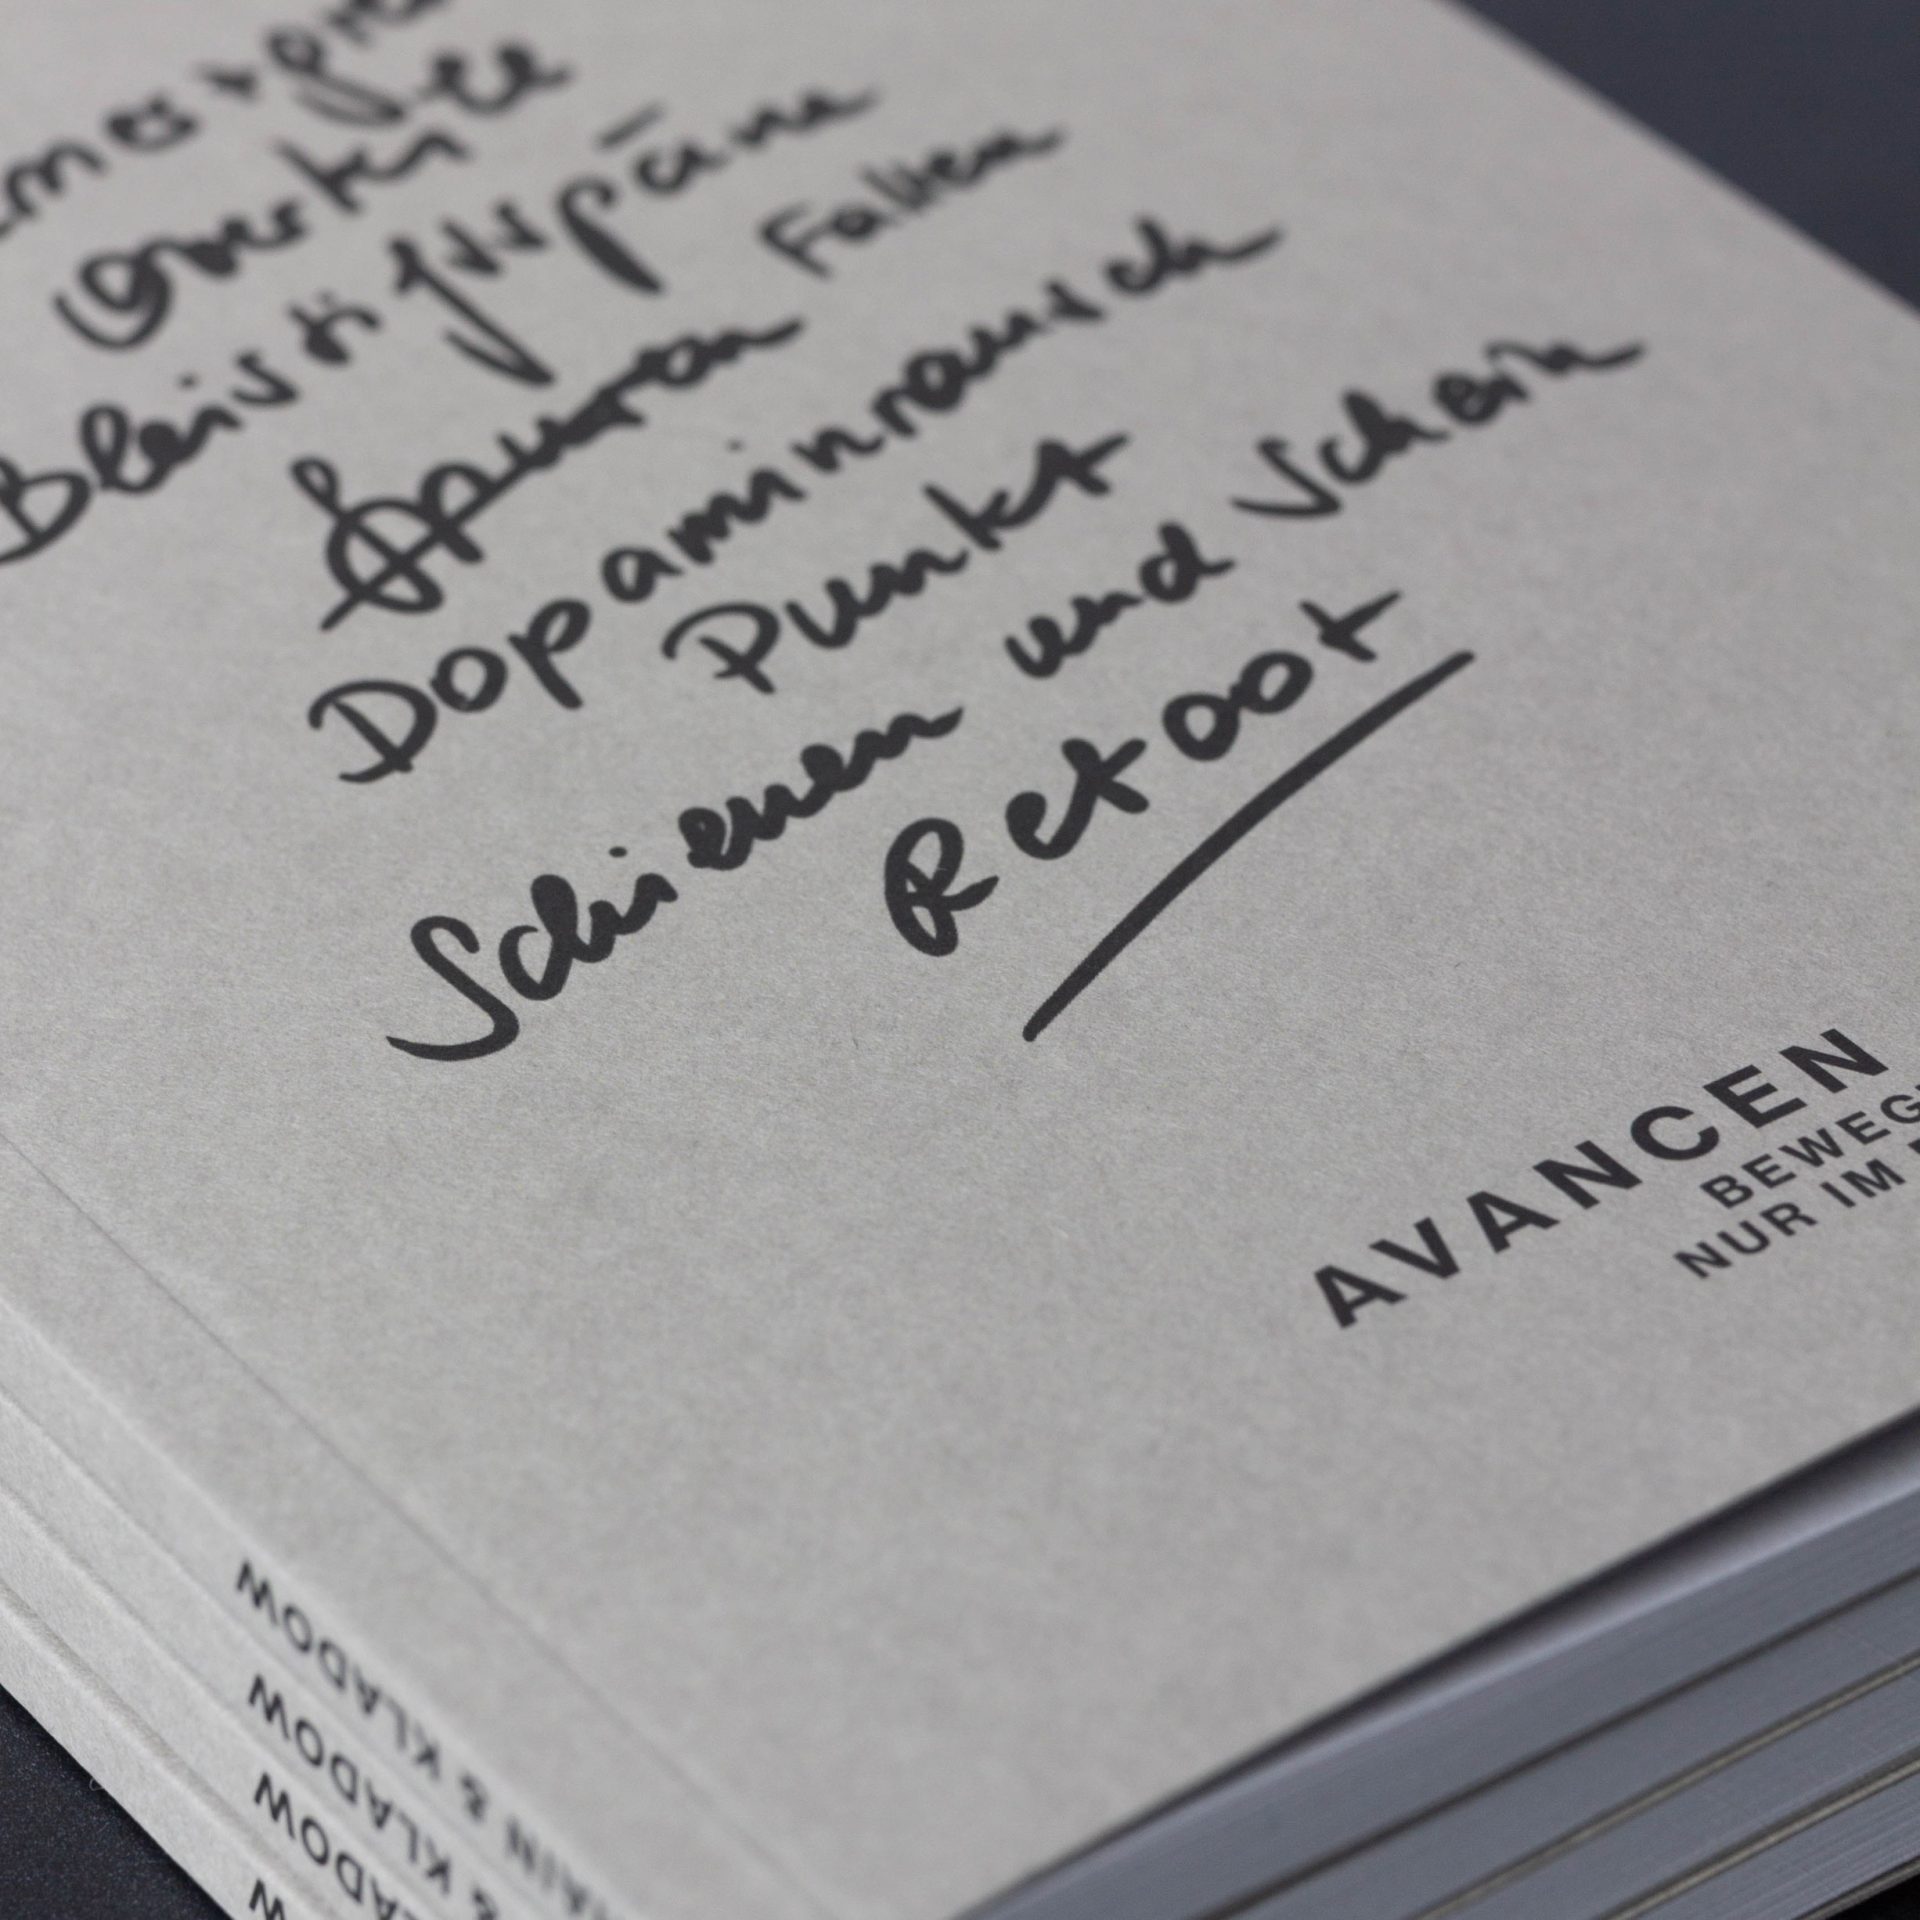 Bleistiftspäne
Spuren Falten
Dopaminrausch
Punkt
Schienen und Schein
Retoot
AVANCEN
BEWEG
NUR IM
AIN & KLADOW
& KLADOW
ADOW
W